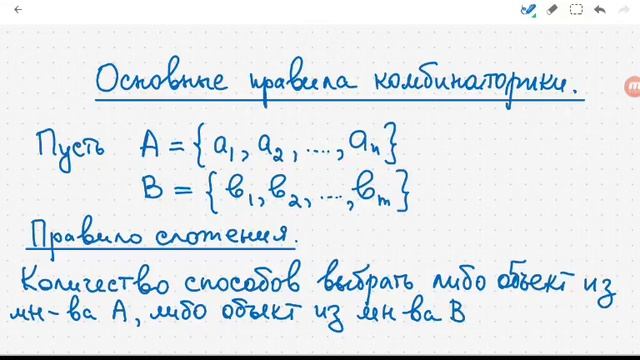 Основные правила комбинаторики.
Пусть A = {a₁, a₂, ...., aₙ}
B = {b₁, b₂, ..., bₘ}
Правило сложения.
Количество способов выбрать либо объект из
мн-ва A, либо объект из мн-ва B